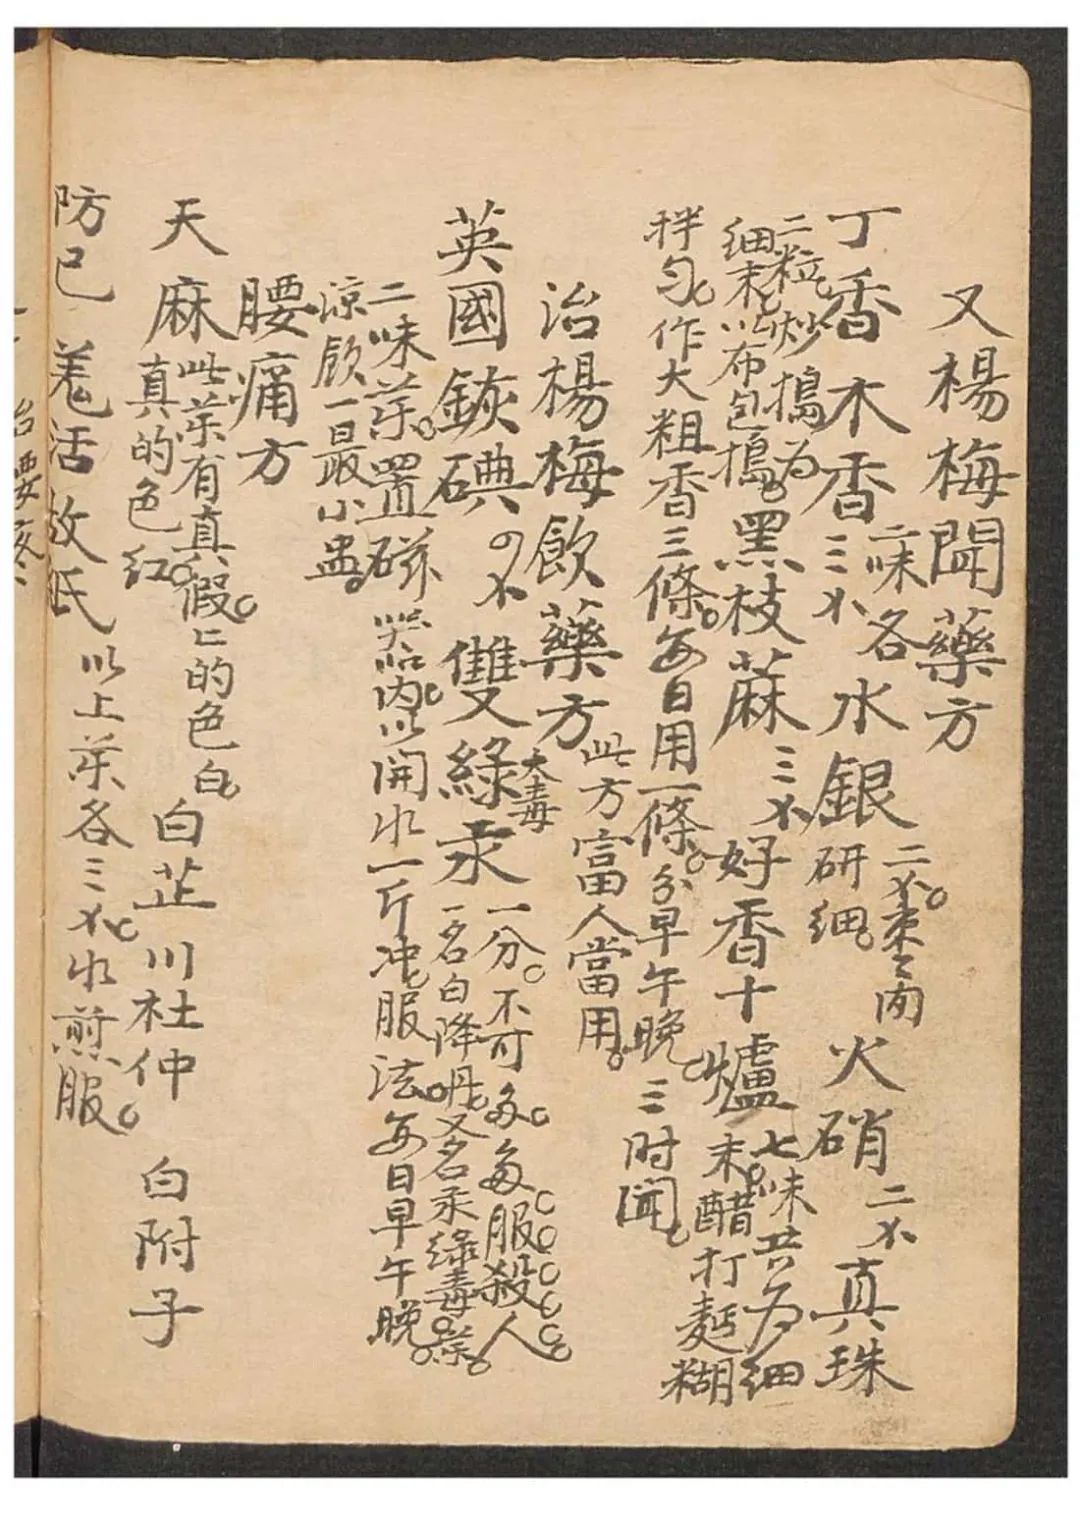 又楊梅聞藥方
丁香木香二味各三水銀二研細火硝二真珠
二粒炒搗為細末以布包搗黑枝蔴三好香十爐七味共為細末醋打麵糊
拌勻作大粗香三條每日用一條分早午晚三时聞
治楊梅飲藥方此方富人當用
英國鋏碘雙綠汞大毒一分不可多多服殺人一名白降丹又名汞綠毒藥
二味藥置磁器內以開水一斤冲服法每日早午晚
涼飲一最小盅
腰痛方
天麻此藥有真假亡的色白真的色紅白芷川杜仲 白附子
防已羗活故氏以上藥各三水煎服